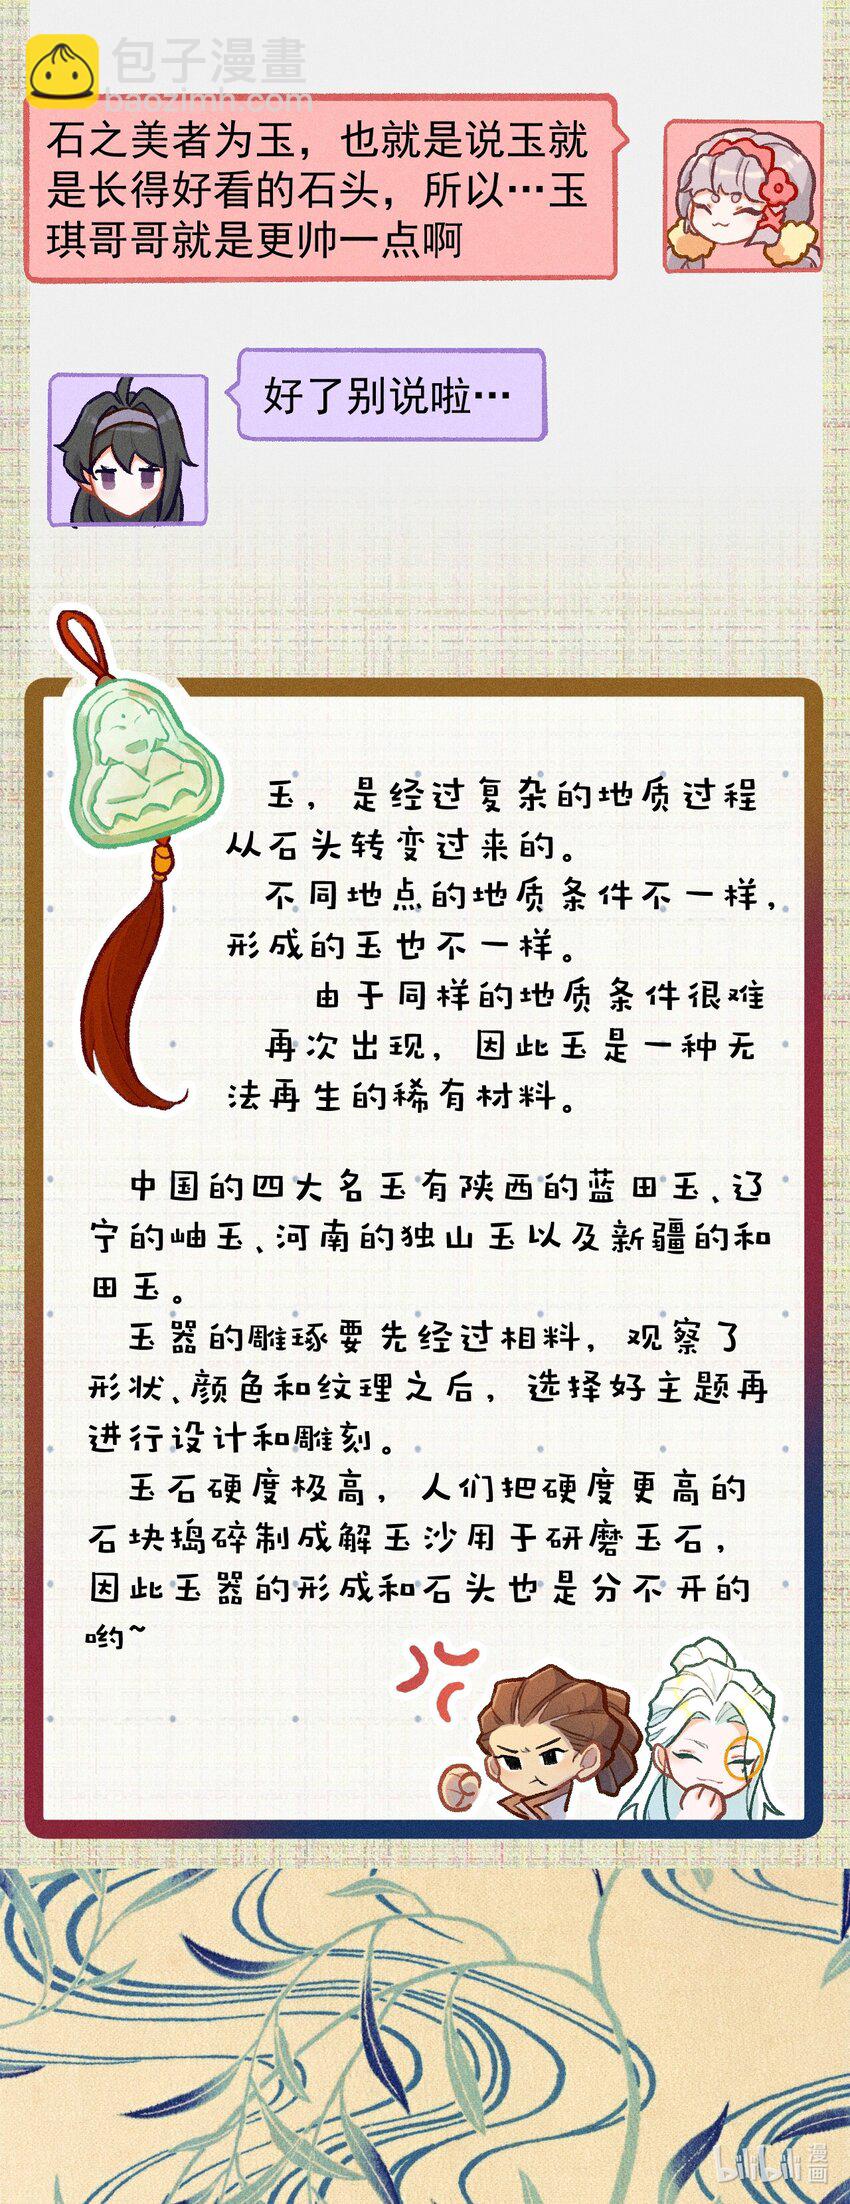 包子漫畫
baozimh.com
石之美者为玉，也就是说玉就
是长得好看的石头，所以…玉
琪哥哥就是更帅一点啊
好了别说啦…
玉，是经过复杂的地质过程
从石头转变过来的。
不同地点的地质条件不一样，
形成的玉也不一样。
由于同样的地质条件很难
再次出现，因此玉是一种无
法再生的稀有材料。
中国的四大名玉有陕西的蓝田玉、辽
宁的岫玉、河南的独山玉以及新疆的和
田玉。
玉器的雕琢要先经过相料，观察了
形状、颜色和纹理之后，选择好主题再
进行设计和雕刻。
玉石硬度极高，人们把硬度更高的
石块捣碎制成解玉沙用于研磨玉石，
因此玉器的形成和石头也是分不开的
哟~
bilibili漫画